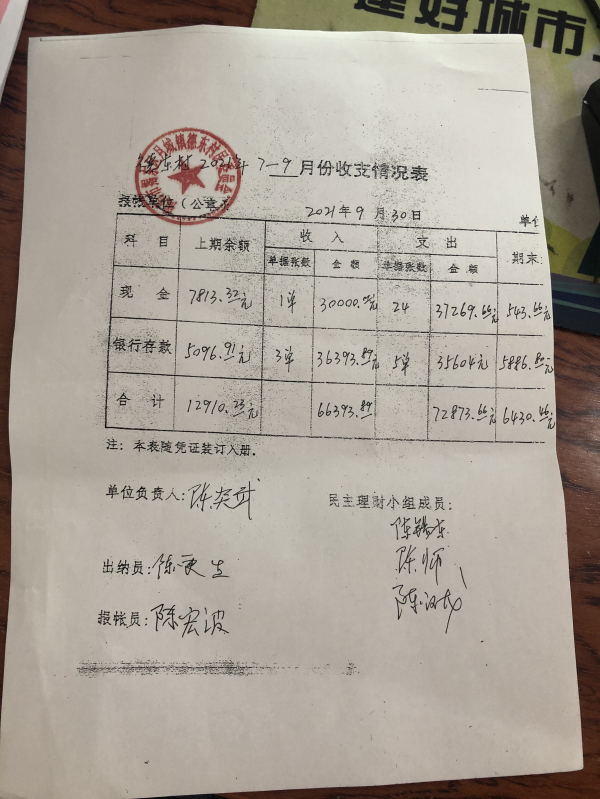 建好城市
德东村 2021年7—9月份收支情况表
月城镇德东村
表帐单位(公章
2021年9月30日
单位
科目 上期余额 收入 支出 期末
单据张数 金额 单据张数 金额
现金 7813.32元 1单 30000.00元 24 37269.66元 543.66元
银行存款 5096.91元 3单 36393.89元 5单 35604元 5886.80元
合计 12910.23元 66393.89 72873.66元 6430.46元
注:本表随凭证装订入册。
单位负责人:陈奕武
民主理财小组成员:
陈锡东
陈师
出纳员:陈更生
陈汉成
报帐员:陈宏波